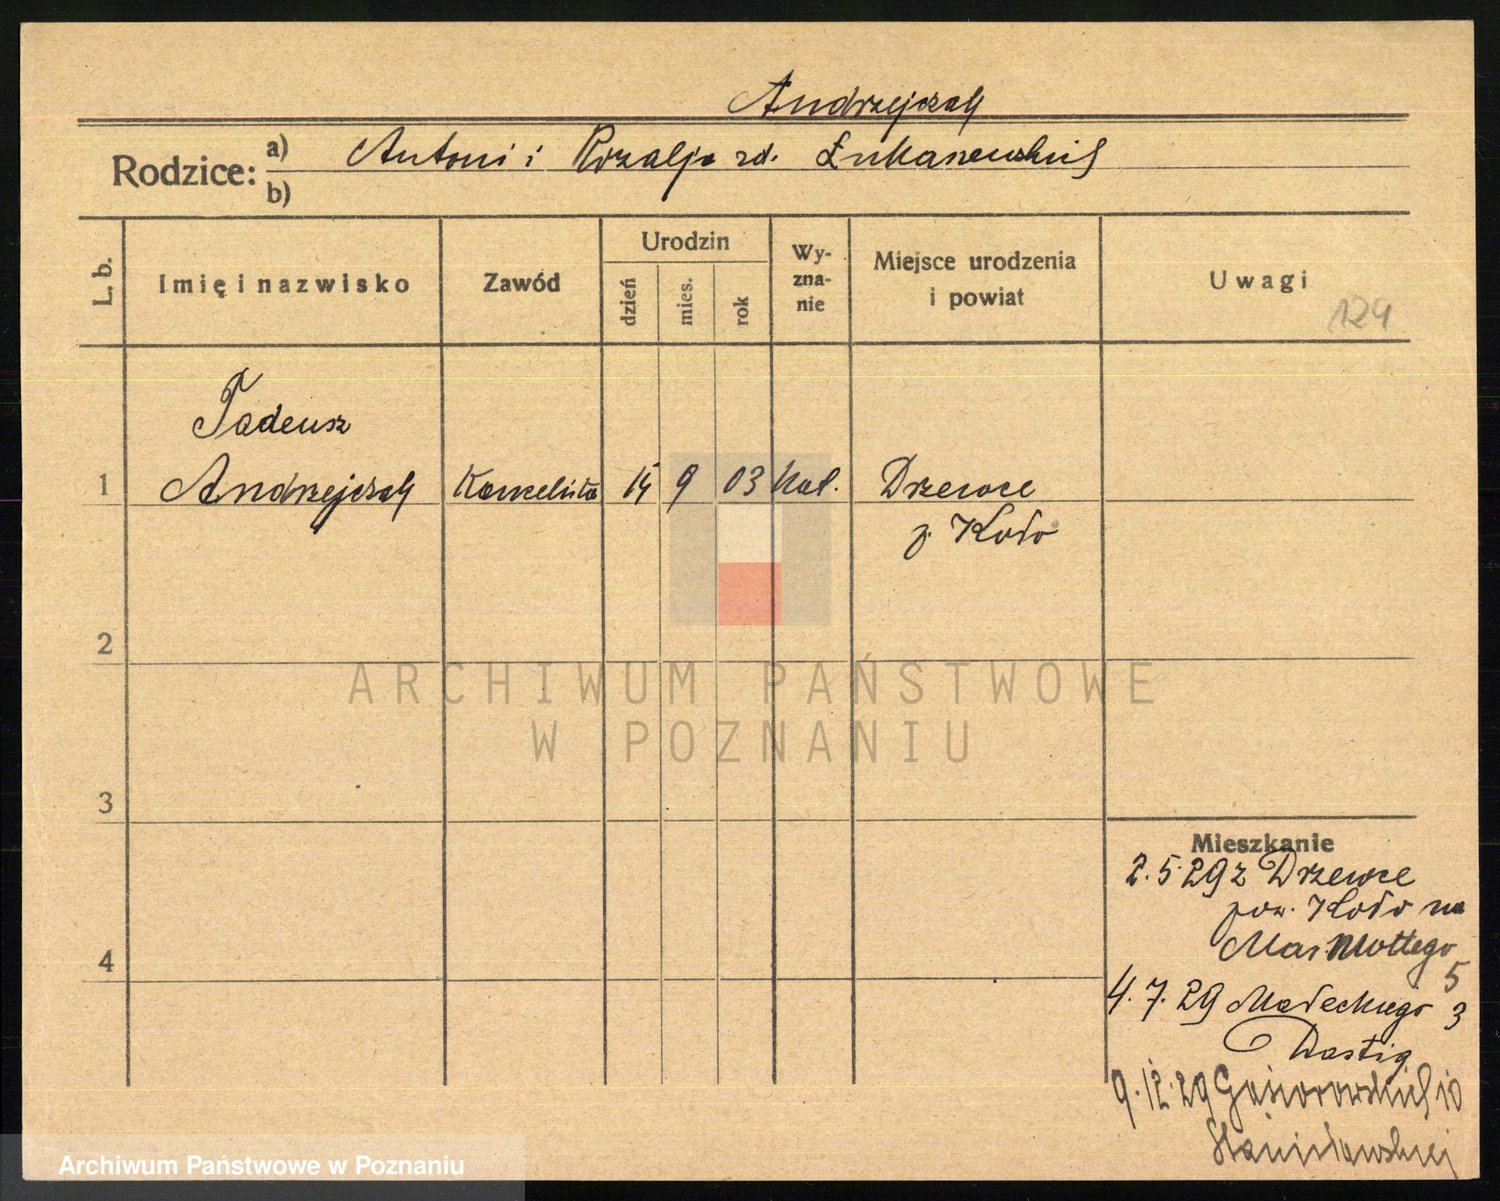 Andrzejczak
Rodzice: a) Antoni i Rozalja zd. Łukaszewskich
b)
L. b. Imię i nazwisko Zawód Urodzin dzień mies. rok Wy-zna-nie Miejsce urodzenia i powiat Uwagi
124
Tadeusz
1 Andrzejczak Kancelista 15 9 03 kat. Drzewce
p. Koło
2
ARCHIWUM PAŃSTWOWE
W POZNANIU
3
Mieszkanie
2.5.29 z Drzewce
pow. Koło na
Mar. Mottego
4
5
4.7.29 Małeckiego 3
9.12.29 Gąsiorowskich 10
Stanisławskiej
Archiwum Państwowe w Poznaniu